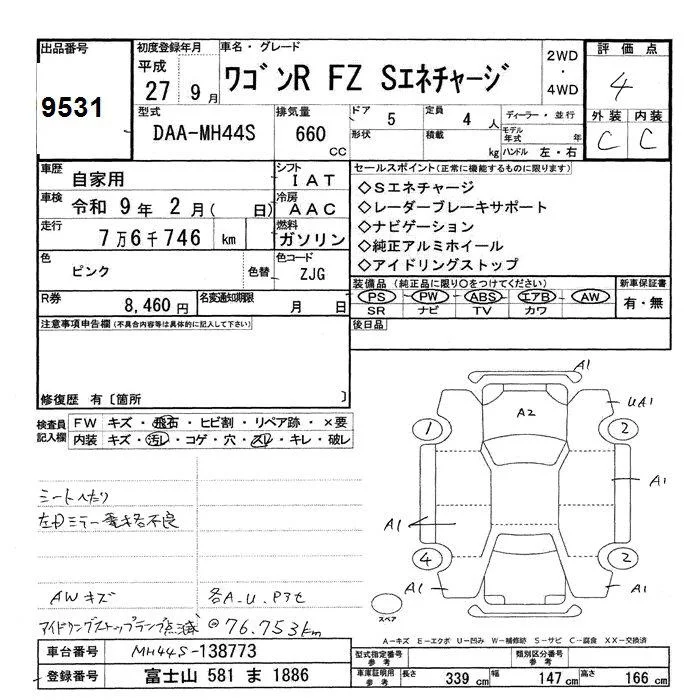 出品番号
9531
初度登録年月
平成
27 9 月
車名・グレード
ワゴンR FZ Sエネチャージ
2WD
・
4WD
評価点
4
外装 内装
C C
型式
DAA-MH44S
排気量
660
CC
ドア 5
形状
定員 4 人
積載 kg
ディーラー・並行
モデル年式 年
ハンドル 左・右
車歴
自家用
シフト
IAT
車検
令和 9 年 2 月( 日)
冷房
AAC
走行
7万6千746 km
燃料
ガソリン
色
ピンク
色替
色コード
ZJG
R券
8,460 円
名変通知期限
月 日
セールスポイント(正常に機能するものに限ります)
◇Sエネチャージ
◇レーダーブレーキサポート
◇ナビゲーション
◇純正アルミホイール
◇アイドリングストップ
装備品 (純正品に限り○をつけてください)
PS - PW - ABS - エアB - AW
SR ナビ TV カワ
新車保証書
有・無
後日品
注意事項申告欄(不具合内容等は具体的に記入して下さい)
修復歴 有〔箇所 〕
検査員
記入欄
FW キズ・飛石・ヒビ割・リペア跡・×要
内装 キズ・汚レ・コゲ・穴・スレ・キレ・破レ
シートへたり
左ドミラー電格不良
AWキズ
各A.U.Pアセ
アイドリングストップランプ点滅 @76.753km
A1
A2
UA1
1
2
A1
A1
4
2
A1
A1
スペア
A-キズ E-エクボ U-凹み W-補修跡 S-サビ C-腐食 XX-交換済
車台番号
MH44S-138773
登録番号
富士山 581 ま 1886
型式指定番号
参考
類別区分番号
参考
車庫証明用
参考
長さ 339 cm
幅 147 cm
高さ 166 cm